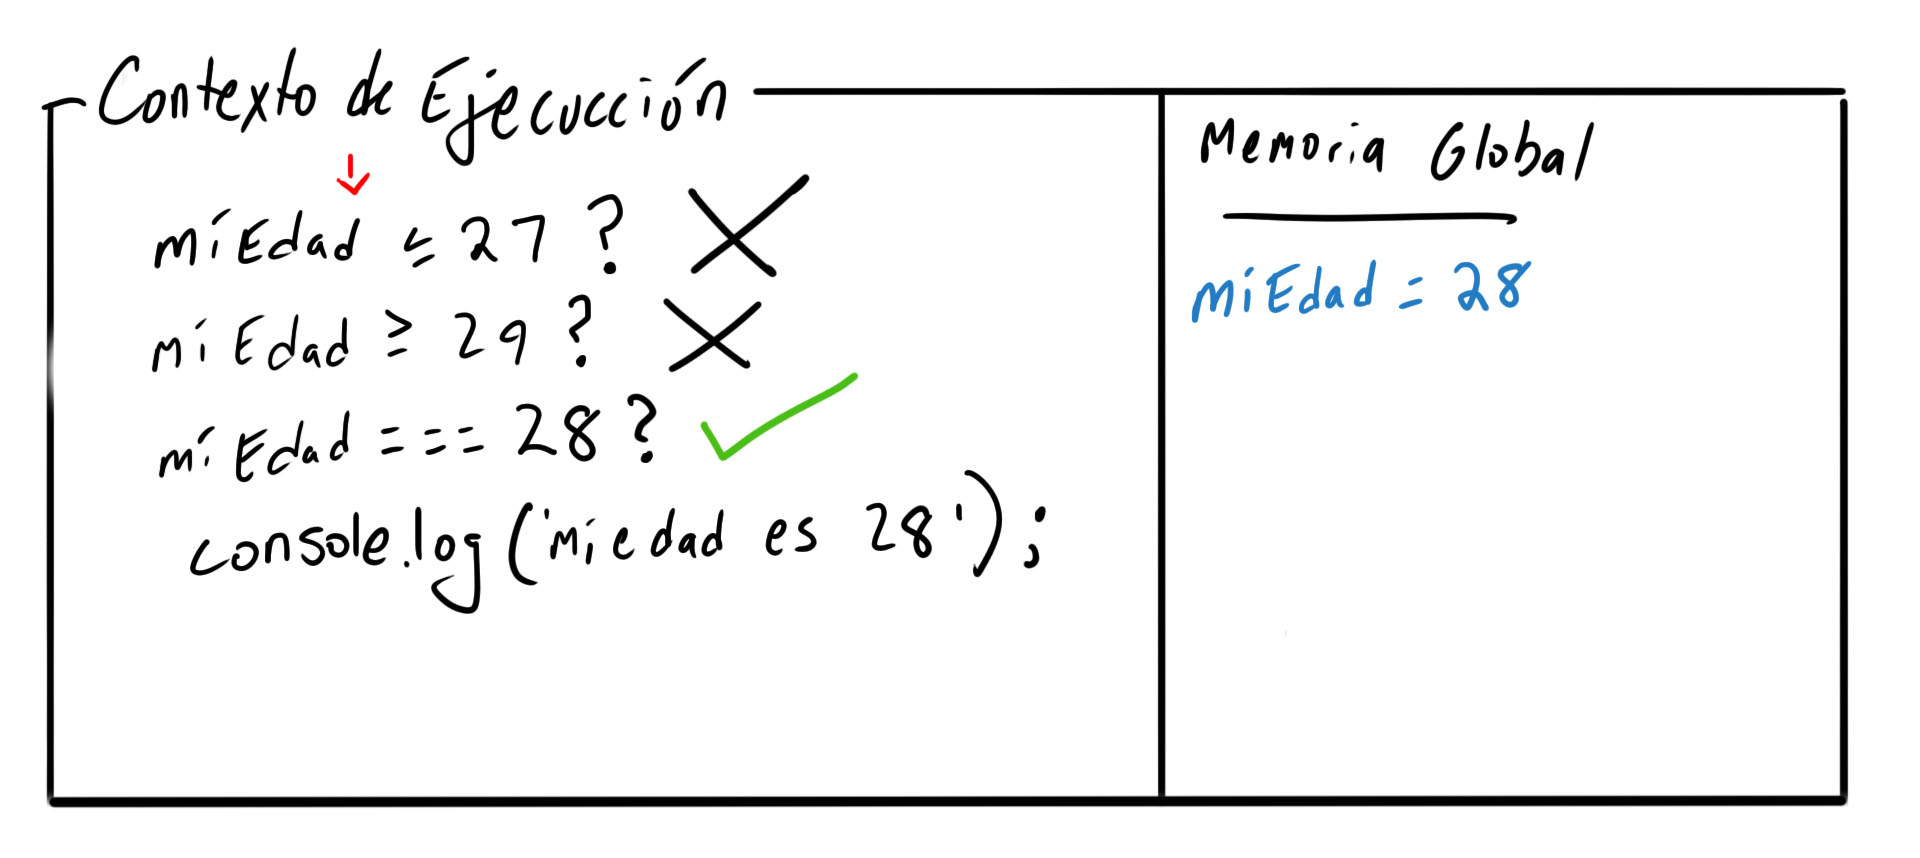 Contexto de Ejecucción
miEdad ≤ 27 ?
miEdad ≥ 29 ?
miEdad === 28 ?
console.log('mi edad es 28');
Memoria Global
miEdad = 28